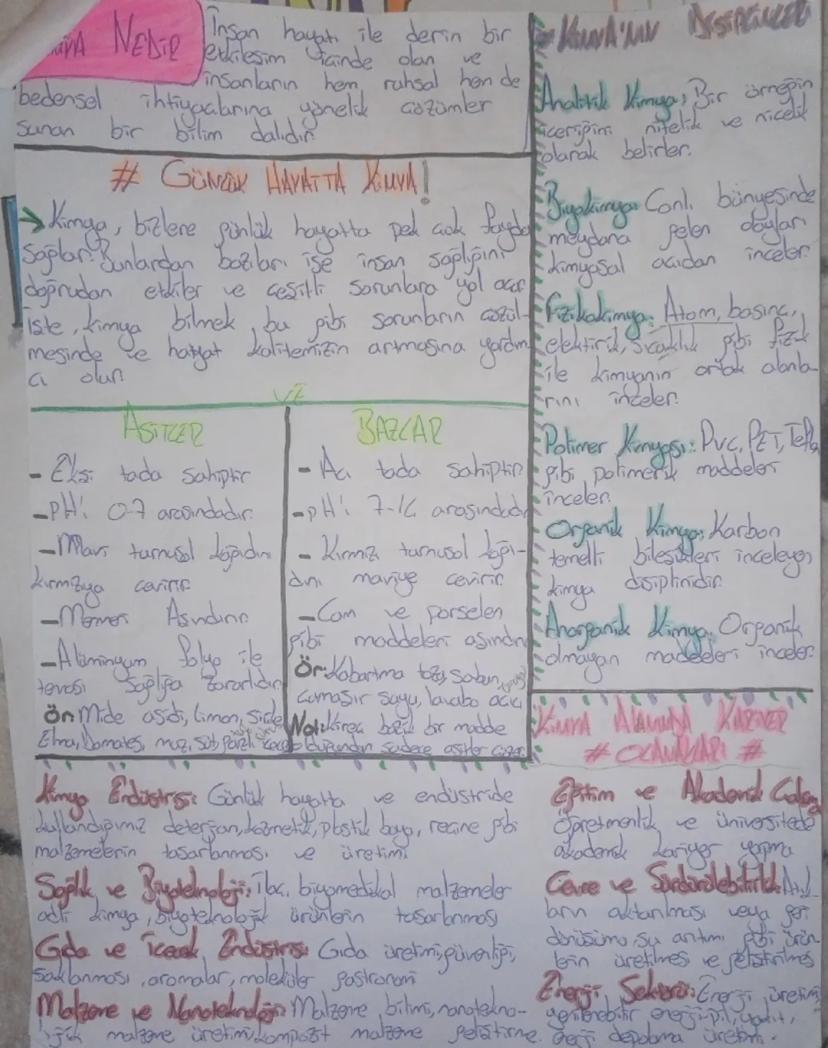 NEDİR
İnsan hayatı ile derin bir
etkileşim içinde olan ve
insanların hem ruhsal hem de
bedensel ihtiyaçlarına yönelik çözümler
sunan bir bilim dalıdır.
# GÜNLÜK HAYATTA KİMYA!
→ Kimya, bizlere günlük hayatta pek çok fayda
sağlar. Bunlardan bazıları ise insan sağlığını
doğrudan etkiler ve çeşitli sorunlara yol açar
İşte, kimya bilmek bu gibi sorunların çözül-
mesinde ve hayat kalitemizin artmasına yardım
cı olur.
VE
ASİTLER
- Ekşi tada sahiptir
- pH: 0-7 arasındadır.
- Mavi turnusol kağıdını
kırmızıya çevirir
- Mermeri Aşındırır
- Alüminyum folyo ile
tavası sağlığa zararlıdır
Ör: Mide asidi, limon, sirke
Elma, Domates, muz, süt
BAZLAR
- Acı tada sahiptir
- pH: 7-14 arasındadır
- Kırmızı turnusol kağı-
dını maviye çevirir
- Cam ve porselen
gibi maddeleri aşındırır
Ör: Kabartma tozu, sabun,
çamaşır suyu, lavabo açıcı
Not: Kireç bazik bir madde
olduğundan sadece asitler çözer
KİMYA'NIN DİSİPLİNLERİ
Analitik Kimya: Bir örneğin
içeriğini nitelik ve nicelik
olarak belirler.
Biyokimya: Canlı bünyesinde
meydana gelen olayları
kimyasal açıdan inceler.
Fizikokimya: Atom, basınç,
elektirik, sıcaklık gibi fizik
ile kimyanın ortak alanla-
rını inceler.
Polimer Kimyası: PVC, PET, Teflon
gibi polimerik maddeleri
inceler.
Organik Kimya: Karbon
temelli bileşikleri inceleyen
kimya disiplinidir.
Anorganik Kimya: Organik
olmayan maddeleri inceler.
KİMYA ALANINDA KARİYER
# OLANAKLARI #
Kimya Endüstrisi: Günlük hayatta ve endüstride
kullandığımız deterjan, kozmetik, plastik boya, reçine gibi
malzemelerin tasarlanması ve üretimi
Sağlık ve Biyoteknoloji: İlaç, biyomedikal malzemeler
adli kimya, biyoteknolojik ürünlerin tasarlanması
Gıda ve İçecek Endüstrisi: Gıda üretimi, güvenliği,
saklanması, aromalar, moleküler gastronomi
Malzeme ve Nanoteknoloji: Malzeme bilimi, nanotekno-
lojik malzeme üretimi, kompozit malzeme geliştirme.
Eğitim ve Akademik Çalışma
Öğretmenlik ve üniversitede
akademik kariyer yapma
Çevre ve Sürdürülebilirlik: Atık-
ların aktarılması veya geri
dönüşümü, su arıtımı gibi ürün-
lerin üretilmesi ve geliştirilmesi
Enerji Sektörü: Enerji üretimi
yenilenebilir enerji, pil, yakıt,
enerji depolama üretimi.